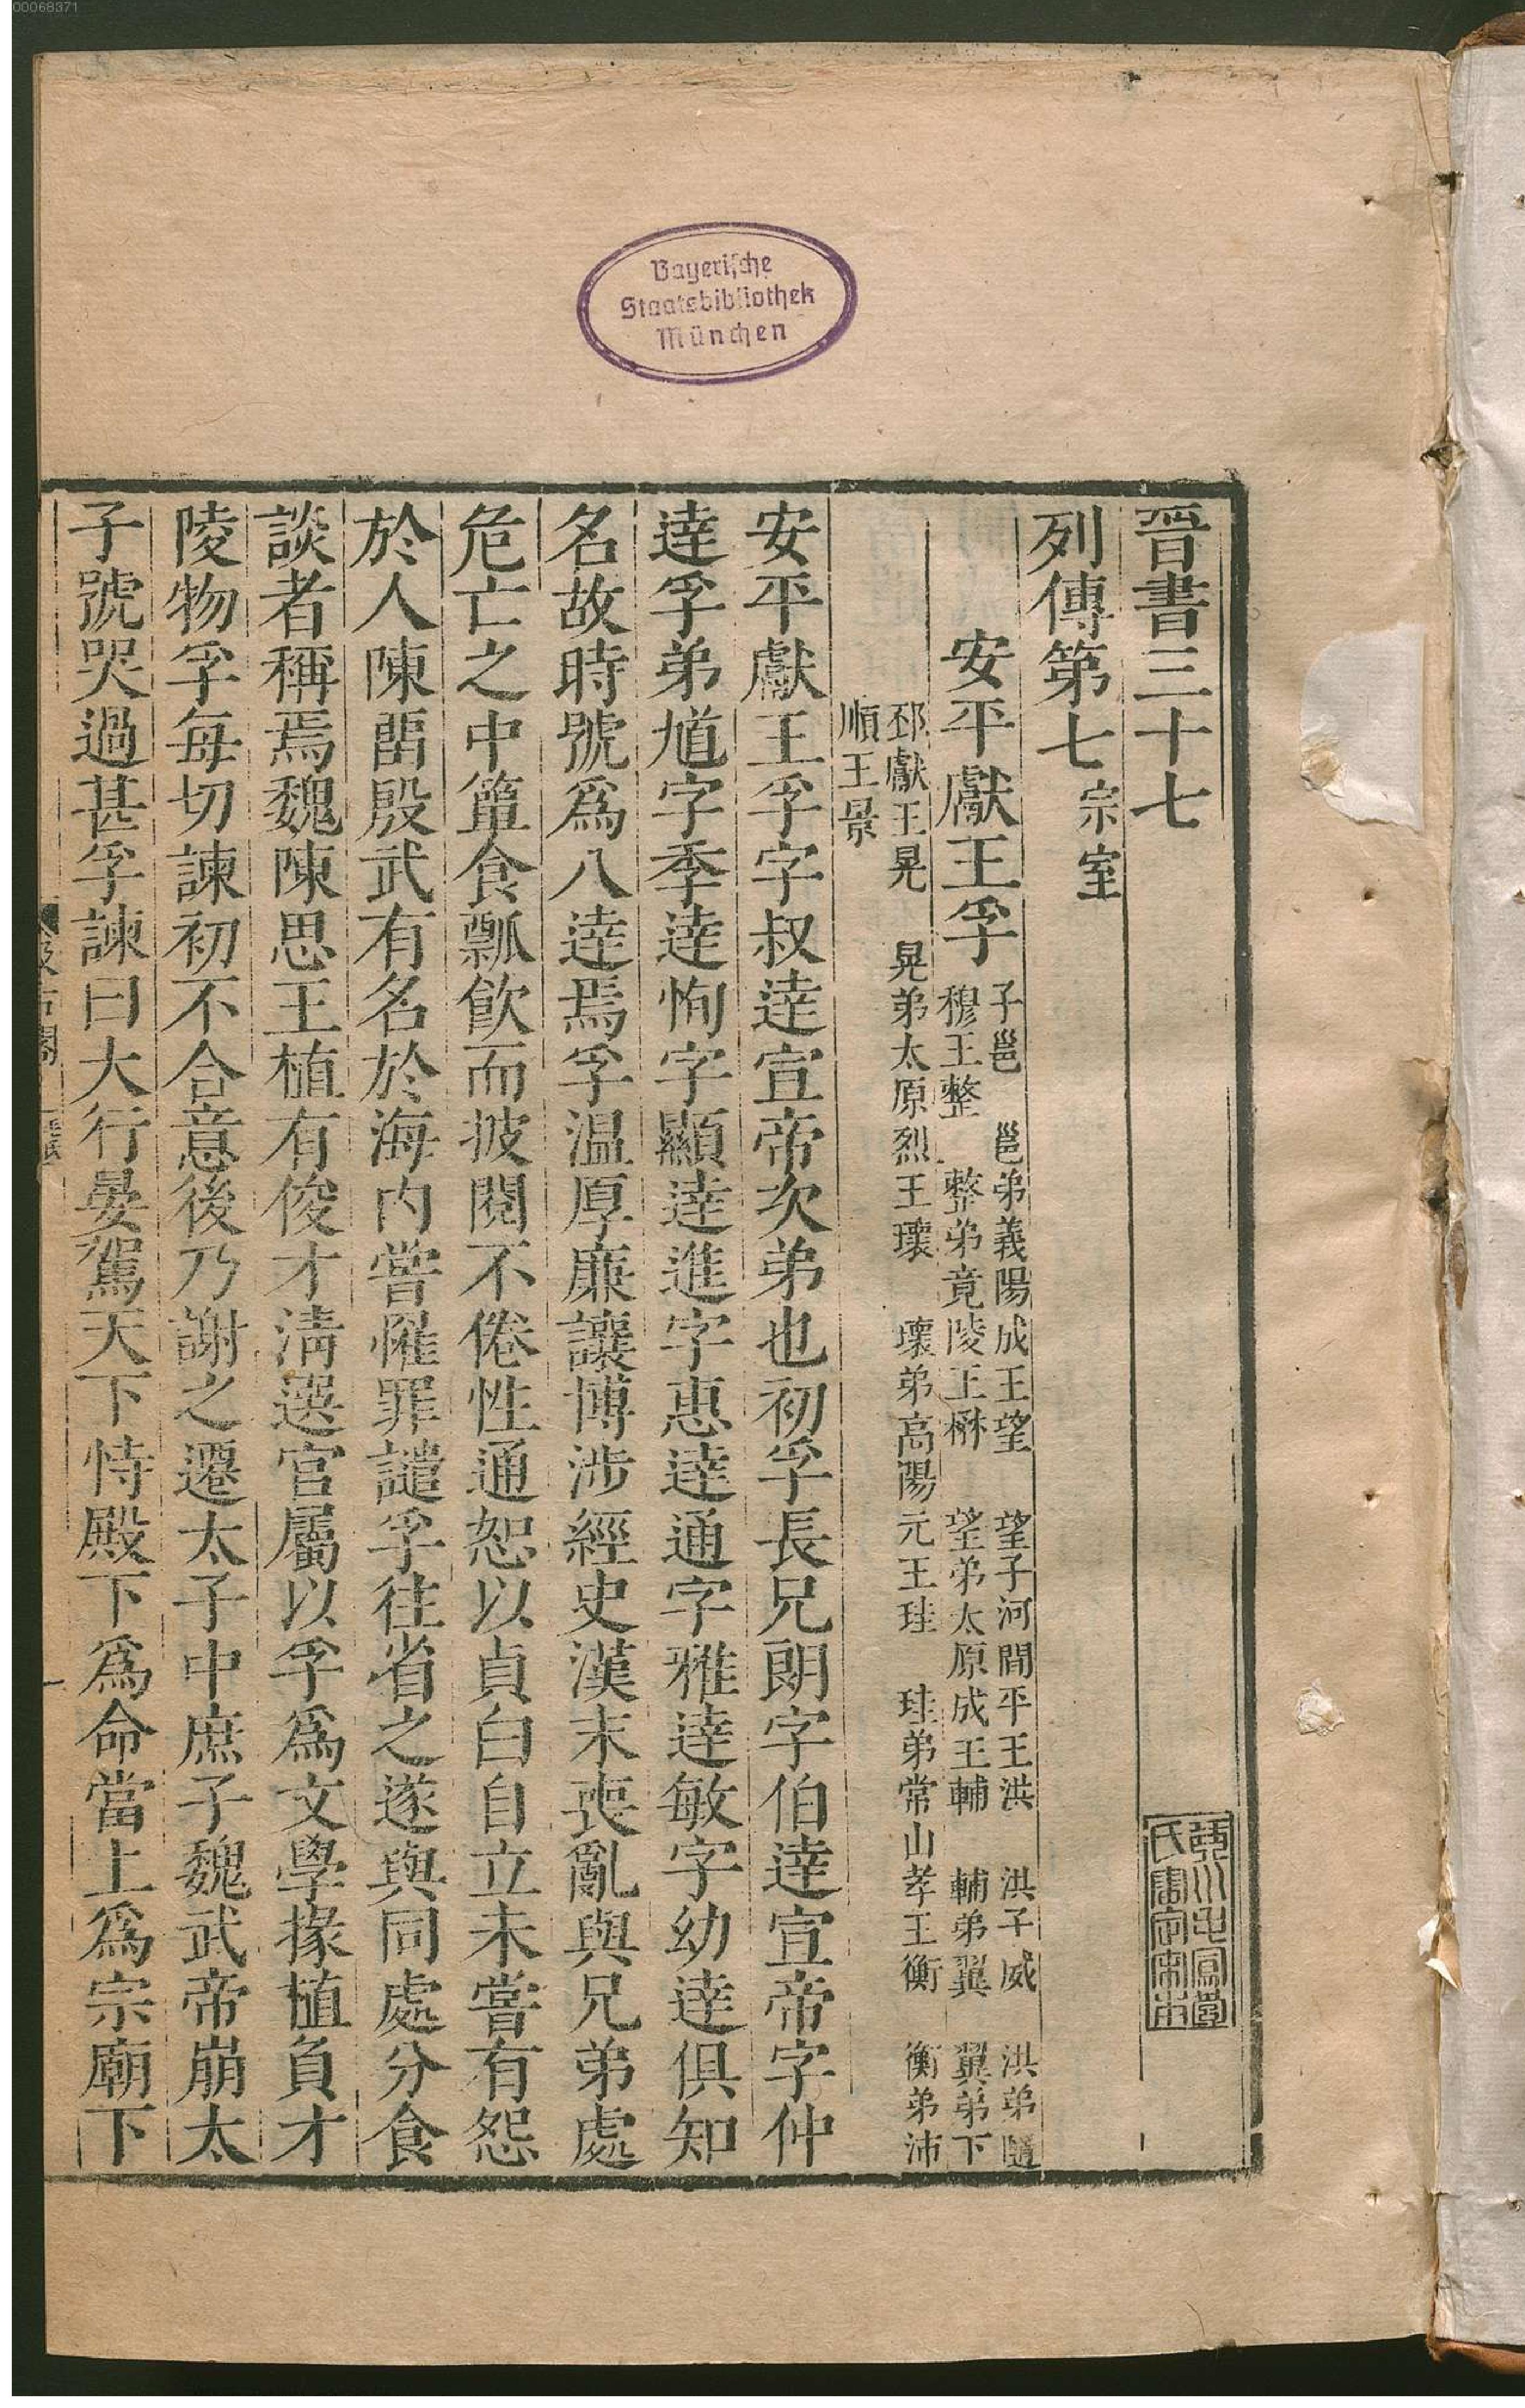 00068371
Bayerische
Staatsbibliothek
München
晉書三十七
列傳第七宗室
安平獻王孚
子邕 邕弟義陽成王望 望子河間平王洪 洪子威 洪弟隨
穆王整 整弟竟陵王楙 望弟太原成王輔 輔弟翼 翼弟下
邳獻王晃 晃弟太原烈王瓌 瓌弟高陽元王珪 珪弟常山孝王衡 衡弟沛
順王景
安平獻王孚字叔達宣帝次弟也初孚長兄朗字伯達宣帝字仲
達孚弟馗字季達恂字顯達進字惠達通字雅達敏字幼達俱知
名故時號爲八達焉孚温厚廉讓博涉經史漢末喪亂與兄弟處
危亡之中簞食瓢飮而披閱不倦性通恕以貞白自立未嘗有怨
於人陳畱殷武有名於海內嘗罹罪譴孚往省之遂與同處分食
談者稱焉魏陳思王植有俊才淸選官屬以孚爲文學掾植負才
陵物孚每切諫初不合意後乃謝之遷太子中庶子魏武帝崩太
子號哭過甚孚諫曰大行晏駕天下恃殿下爲命當上爲宗廟下